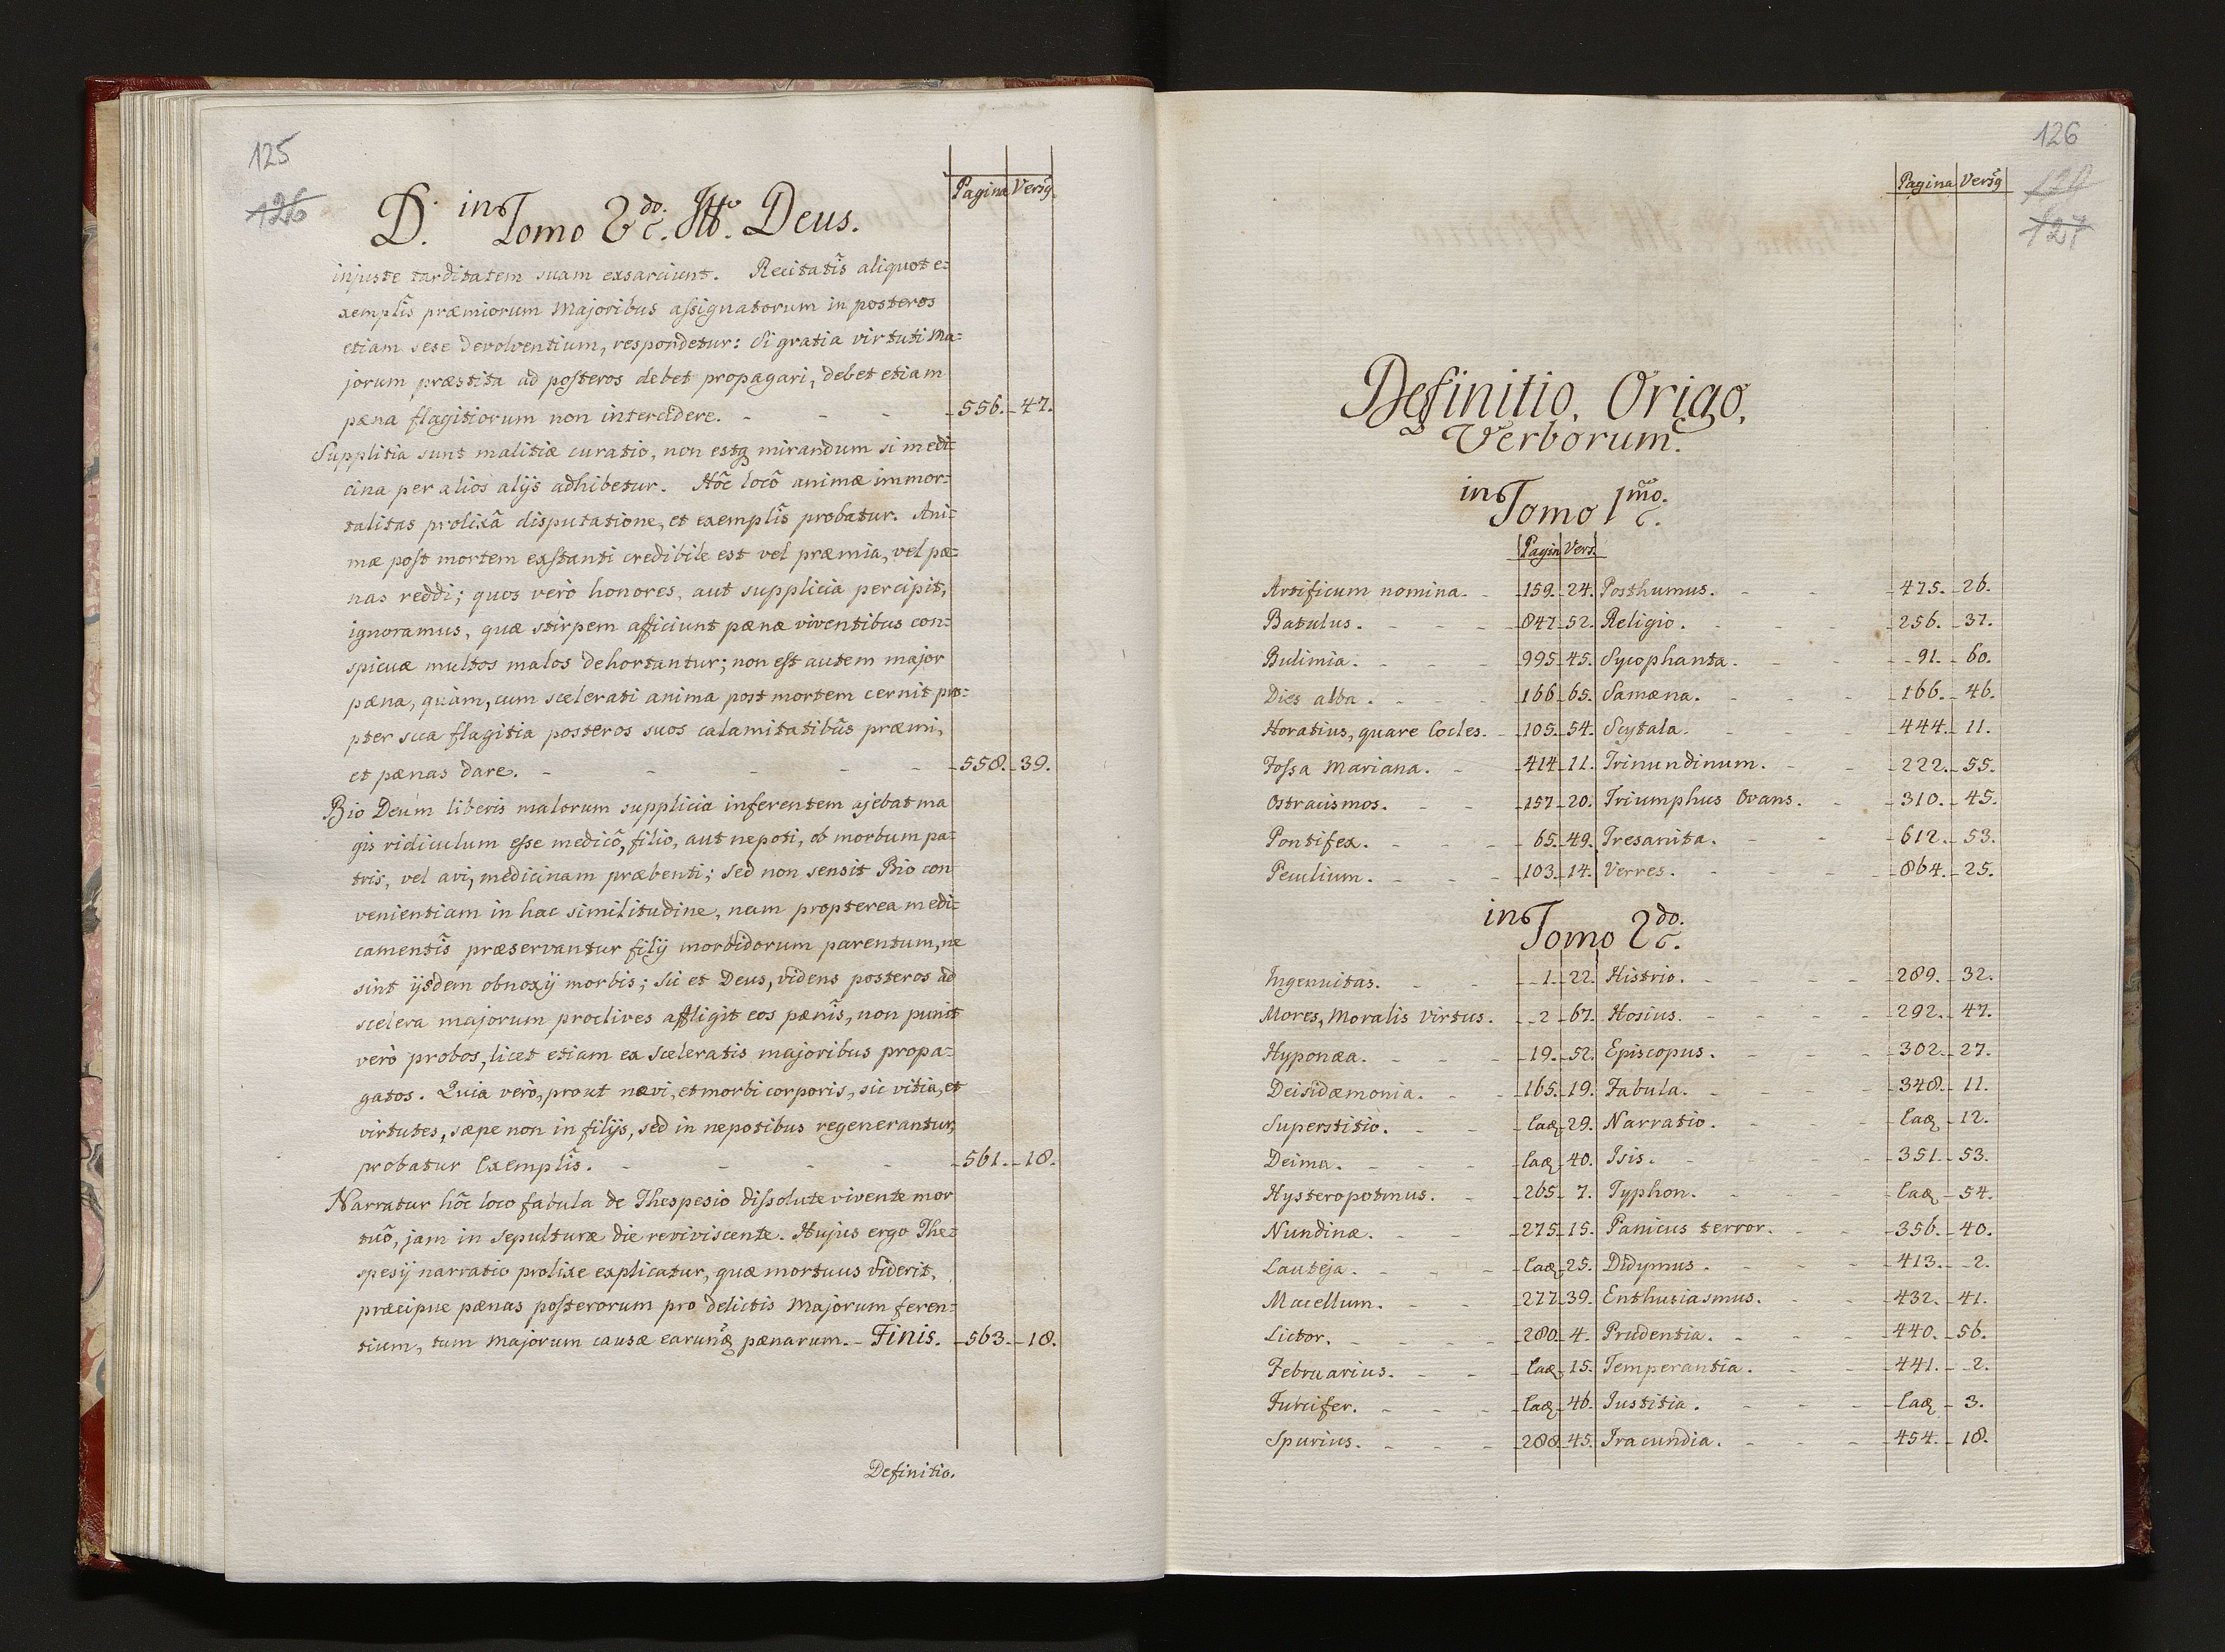 125
126
Pagina Versq.
D. in Tomo 2do. Ws. Deus.
injuste tarditatem suam exsarciunt. Recitatis aliquot e=
xemplis præmiorum Majoribus assignatorum in posteros
etiam sese devolventium, respondetur: Si gratia virtuti Ma=
jorum præstita ad posteros debet propagari, debet etiam
pæna flagitiorum non intercidere. - - - 556. 47.
Supplitia sunt malitiæ curatio, non estq mirandum si medi=
cina per alios alijs adhibetur. Hôc locô animæ immor=
talitas prolixâ disputatione, et exemplis probatur. Ani=
mæ post mortem exstanti credibile est vel præmia, vel pæ=
nas reddi; quos verò honores, aut supplicia percipit,
ignoramus, quæ stirpem afficiunt pænæ viventibus con=
spicuæ multos malos dehortantur; non est autem major
pæna, quàm, cum scelerati anima post mortem cernit pro=
pter sua flagitia posteros suos calamitatibûs præmi,
et pænas dare. - - - - - 558. 39.
Bio Deum liberis malorum supplicia inferentem ajebat ma
gis ridiculum esse medicô, filio, aut nepoti, ob morbum pa=
tris, vel avi, medicinam præbenti; sed non sensit Bio con
venientiam in hac similitudine, nam propterea medi=
camentis præservantur filij morbidorum parentum, ne
sint ijsdem obnoxij morbis; sic et Deus, videns posteros ad
scelera majorum proclives affligit eos pænis, non punit
verò probos, licet etiam ex sceleratis majoribus propa=
gatos. Quia verò, prout nævi, et morbi corporis, sic vitia, et
virtutes, sæpe non in filijs, sed in nepotibus regenerantur,
probatur Exemplis. - - - - 561. 18.
Narratur hôc loco fabula de Thespesio dissolute vivente mor
tuô, jam in sepulturæ die reviviscente. Hujus ergo The=
spesij narratio prolixe explicatur, quæ mortuus viderit,
præcipue pænas posterorum pro delictis Majorum feren=
tium, tum Majorum causæ earunq pænarum. - Finis. - 563. 18.
Definitio.
126
127
Pagina Versq
Definitio, Origo,
Verborum.
in Tomo 1mo.
Pagin Vers.
Artificum nomina. - 159. 24. Posthumus. - - 475. 26.
Batulus. - - - 847. 52. Religio. - - - 256. 37.
Bulimia. - - - 995. 45. Sycophanta. - - 91. 60.
Dies alba. - - - 166. 65. Samæna. - - - 166. 46.
Horatius, quare Cocles. - 105. 54. Scytala. - - - 444. 11.
Fossa Mariana. - 414. 11. Trinundinum. - - 222. 55.
Ostracismos. - - 157. 20. Triumphus Ovans. - 310. 45.
Pontifex. - - - 65. 49. Tresantta. - - 612. 53.
Peculium. - - - 103. 14. Verres. - - - - 864. 25.
in Tomo 2do.
Ingenuitas. - - 1. 22. Histrio. - - - 289. 32.
Mores, Moralis virtus. - 2. 67. Hosius. - - - - 292. 47.
Hyponæa. - - - 19. 52. Episcopus. - - - 302. 27.
Deisidæmonia. - - 165. 19. Fabula. - - - - 348. 11.
Superstitio. - - Eaq 29. Narratio. - - - Eaq 12.
Deima. - - - Eaq 40. Isis. - - - - 351. 53.
Hysteropotmus. - 265. 7. Typhon. - - - - Eaq 54.
Nundinæ. - - 275. 15. Panicus terror. - - 356. 40.
Lauteja. - - - Eaq 25. Didymus. - - - 413. 2.
Macellum. - - 277. 39. Enthusiasmus. - - 432. 41.
Lictor. - - - - 280. 4. Prudentia. - - - 440. 56.
Februarius. - - Eaq 15. Temperantia. - - 441. 2.
Furcifer. - - - Eaq 46. Justitia. - - - Eaq 3.
Spurius. - - - 288. 45. Iracundia. - - - 454. 18.